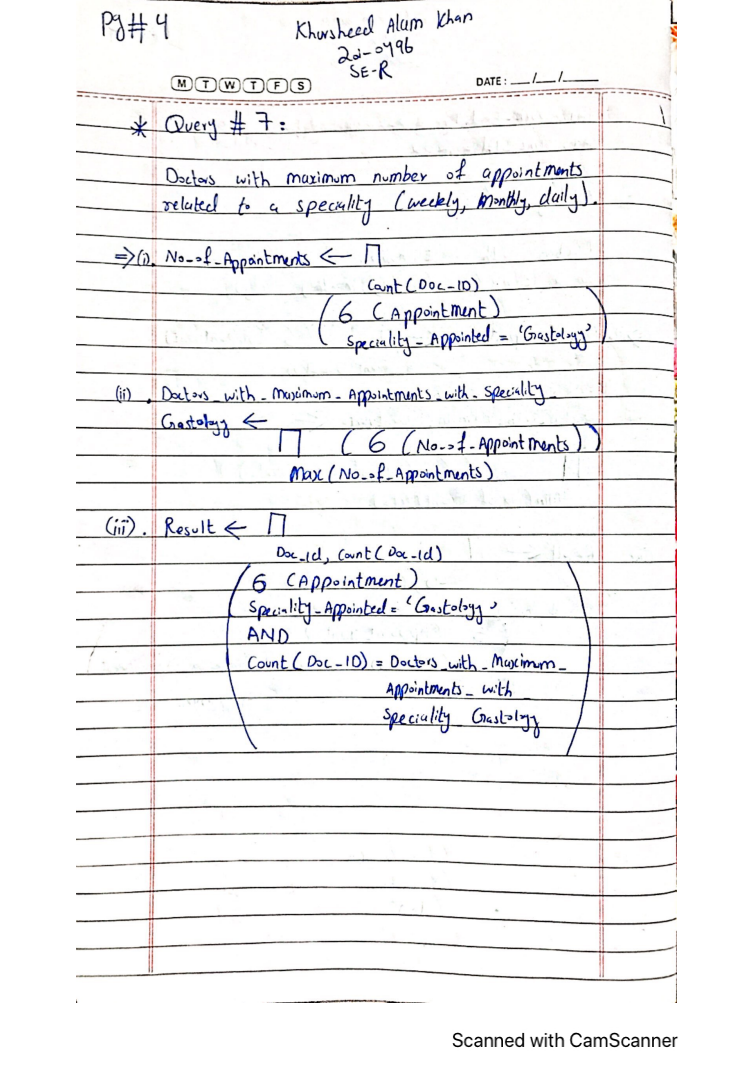 Pg# 4
Khursheed Alam Khan
22i-0496
SE-R
M T W T F S
DATE: __/__/____
* Query # 7:
Doctors with maximum number of appointments
related to a speciality (weekly, Monthly, daily).
=>(i). No-of-Appointments ← Π
Count(Doc-ID)
(6 (Appointment)
Speciality-Appointed = 'Gastology')
(ii). Doctors_with-Maximum-Appointments_with-Speciality
Gastology ←
Π (6 (No-of-Appointments))
Max(No-of-Appointments)
(iii). Result ← Π
Doc-Id, Count(Doc-Id)
(6 (Appointment)
Speciality-Appointed = 'Gastology'
AND
Count(Doc-ID) = Doctors_with-Maximum-
Appointments_with
Speciality Gastology)
Scanned with CamScanner